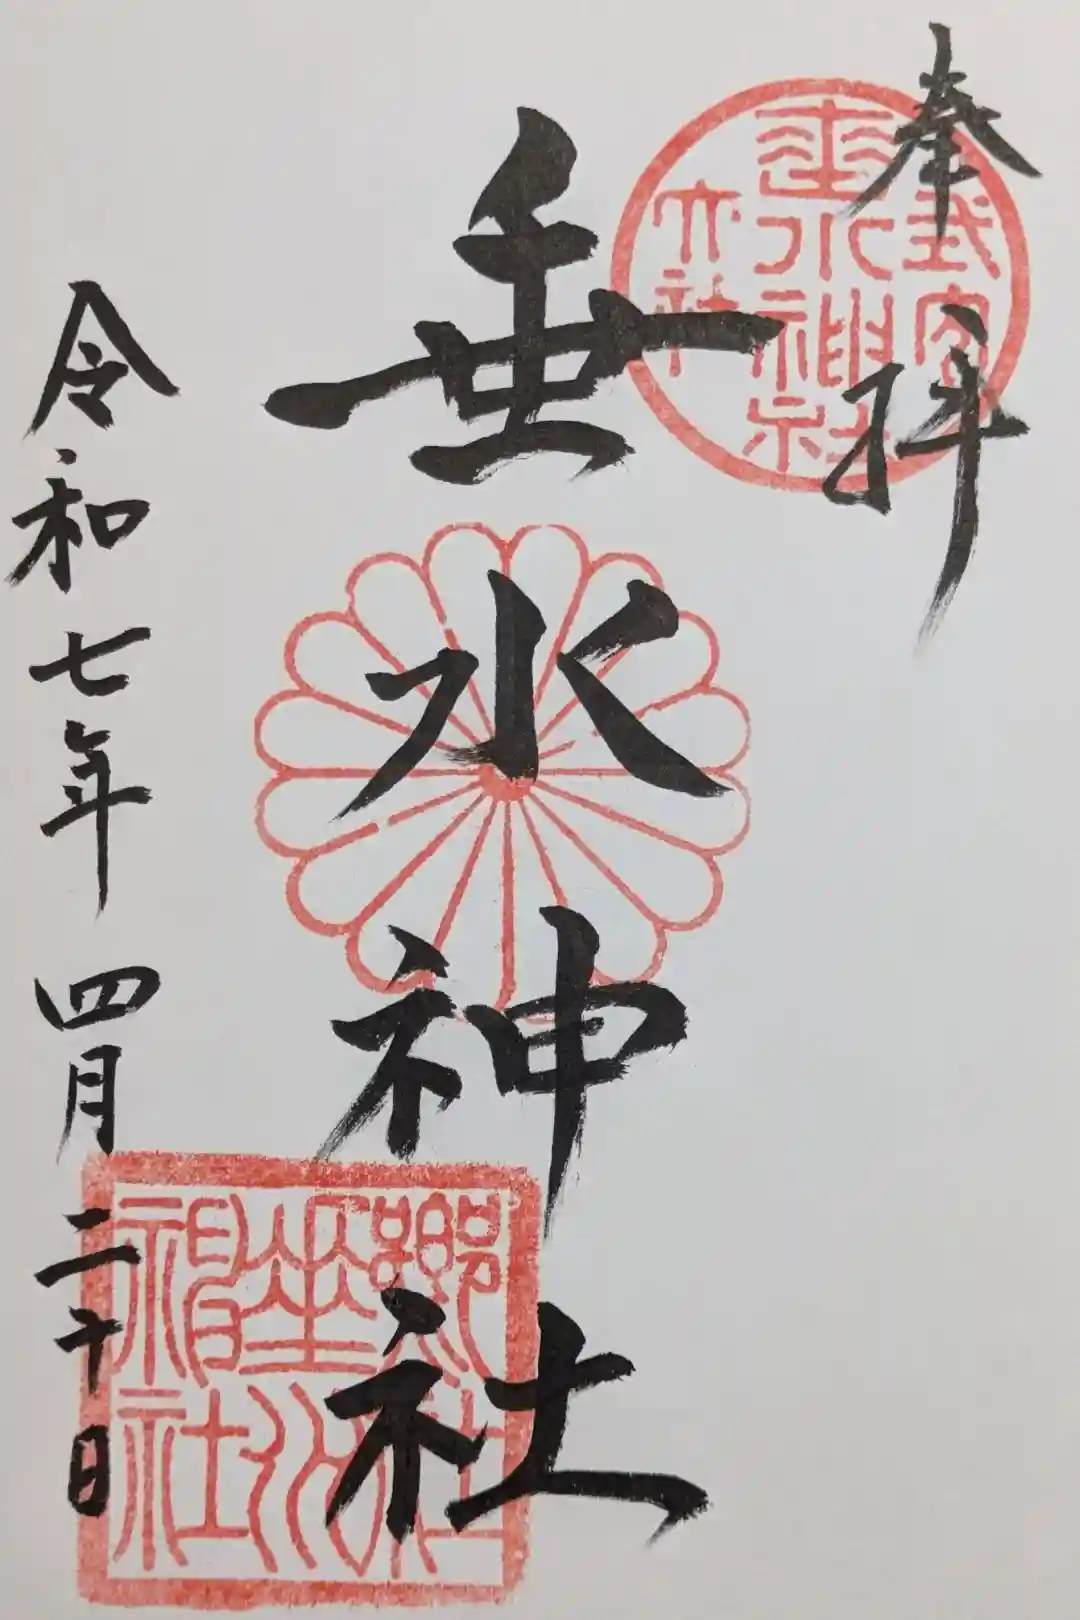 奉拝
式内
垂水神社
大社
垂水神社
令和七年四月二十日